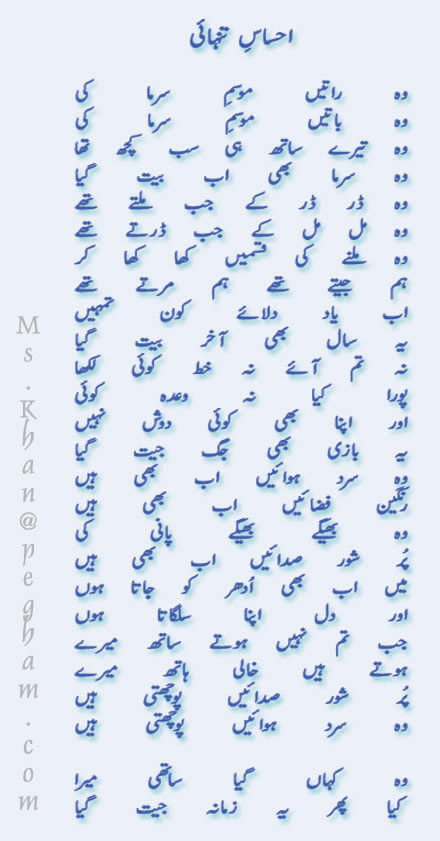 احساسِ تنہائی
وہ راتیں موسمِ سرما کی
وہ باتیں موسمِ سرما کی
وہ تیرے ساتھ ہی سب کچھ تھا
وہ سرما بھی اب بیت گیا
وہ ڈر ڈر کے جب ملتے تھے
وہ مل مل کے جب ڈرتے تھے
وہ ملنے کی قسمیں کھا کھا کر
ہم جیتے تھے ہم مرتے تھے
اب یاد دلائے کون تمہیں
یہ سال بھی آخر بیت گیا
نہ تم آئے نہ خط کوئی لکھا
پورا کیا نہ وعدہ کوئی
اور اپنا بھی کوئی دوش نہیں
یہ بازی بھی جگ جیت گیا
وہ سرد ہوائیں اب بھی ہیں
رنگین فضائیں اب بھی ہیں
وہ بھیگے بھیگے پانی کی
پُر شور صدائیں اب بھی ہیں
میں اب بھی اُدھر کو جاتا ہوں
اور دل اپنا سلگاتا ہوں
جب تم نہیں ہوتے ساتھ میرے
ہوتے ہیں خالی ہاتھ میرے
پُر شور صدائیں پوچھتی ہیں
وہ سرد ہوائیں پوچھتی ہیں
وہ کہاں گیا ساتھی میرا
کیا پھر یہ زمانہ جیت گیا
Ms.Khan@pegham.com